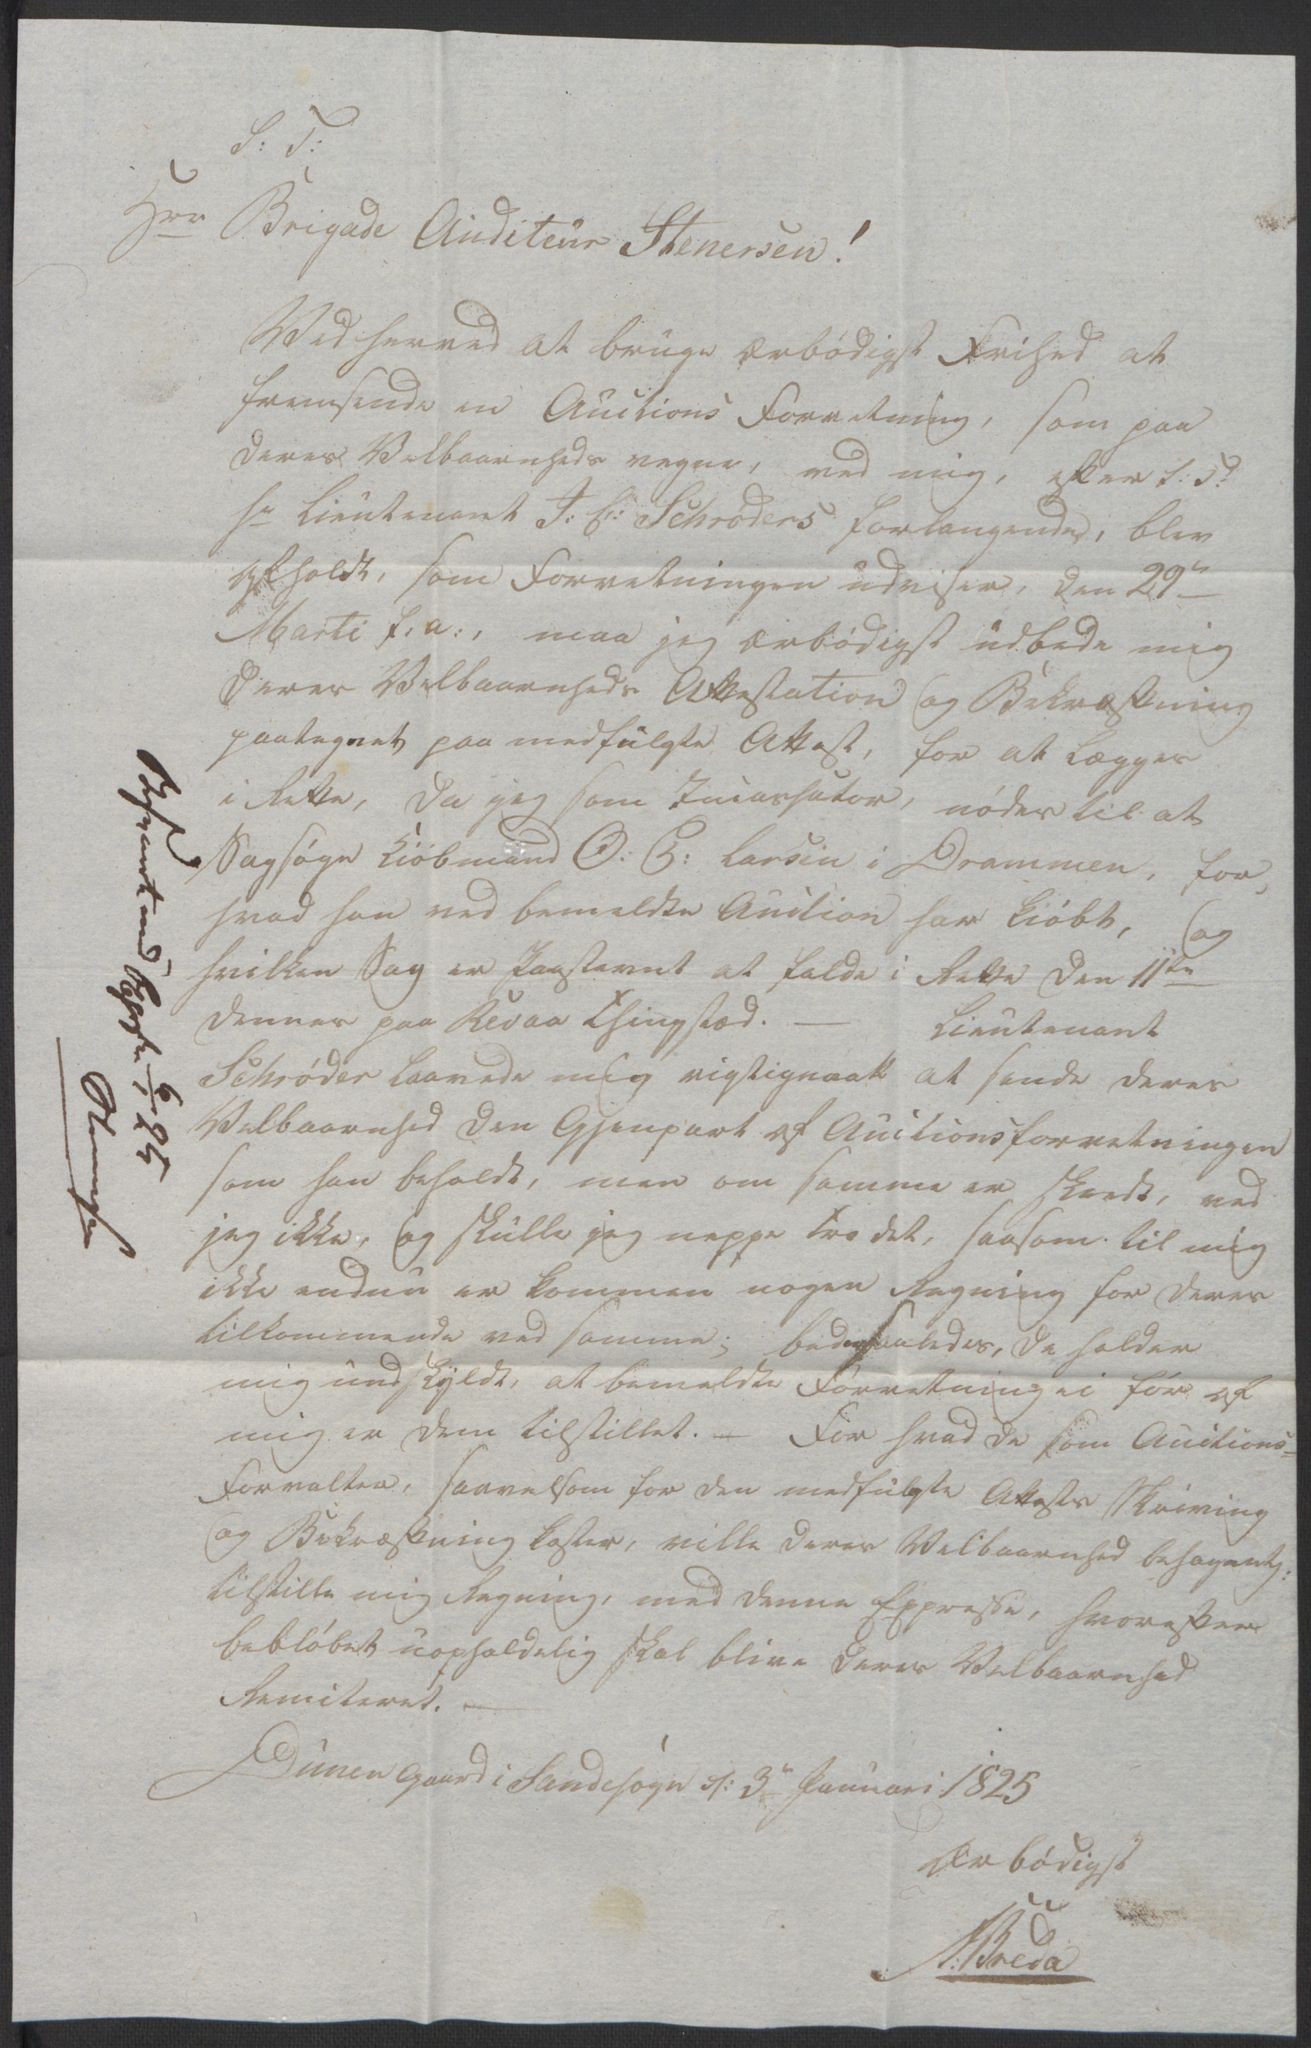 S: T:
Herr Brigade Auditeur Stenersen!
Ved herved at bruge ærbødigst Frihed at
fremsende en Auctions Forretning, som paa
Deres Velbaarnheds vegne, ved mig, efter S: T:
Hr Lieutenant J: C: Schrøders forlangende, blev
afholdt, som Forretningen udviser, den 29de
Marti f. a:, maa jeg ærbødigst udbede mig
Deres Velbaarnheds Attestation og Bekræftning
paategnet paa medfølgte Attest, for at lægges
i Rette, da jeg som Incassator, nødes til at
Sagsøge Kiøbmand O: C: Larsen i Drammen, for,
hvad han ved bemeldte Auction har kiøbt, og
hvilken Sag er Indstevnt at falde i Rette den 11te
dennes paa Revaa Thingsted. — Lieutenant
Schrøder laavede mig rigtignok at sende Deres
Velbaarnhed den Gjenpart af Auctionsforretningen
som han beholdt, men om samme er skeedt, ved
jeg ikke, og skulle jeg neppe troe det, saasom til mig
ikke endnu er kommen nogen Regning for Deres
tilkommende ved samme; beder saaledes, De holder
mig undskyldt, at bemeldte Forretning ei før af
mig er Dem tilstillet. — For hvad De som Auctions-
Forvalter, saavelsom for den medfulgte Attests Skriving
og Bekræftning koster, ville Deres Velbaarnhed behagentl:
tilstille mig Regning, med denne Expresse, hvorefter
bebløbet uopholdelig skal blive Deres Velbaarnhed
Remiteret. —
Dunen Gaard i Sandesogn d: 3de Januari 1825
Ærbødigst
N: Breda
Besvaret med 6/1 25
Stenersen